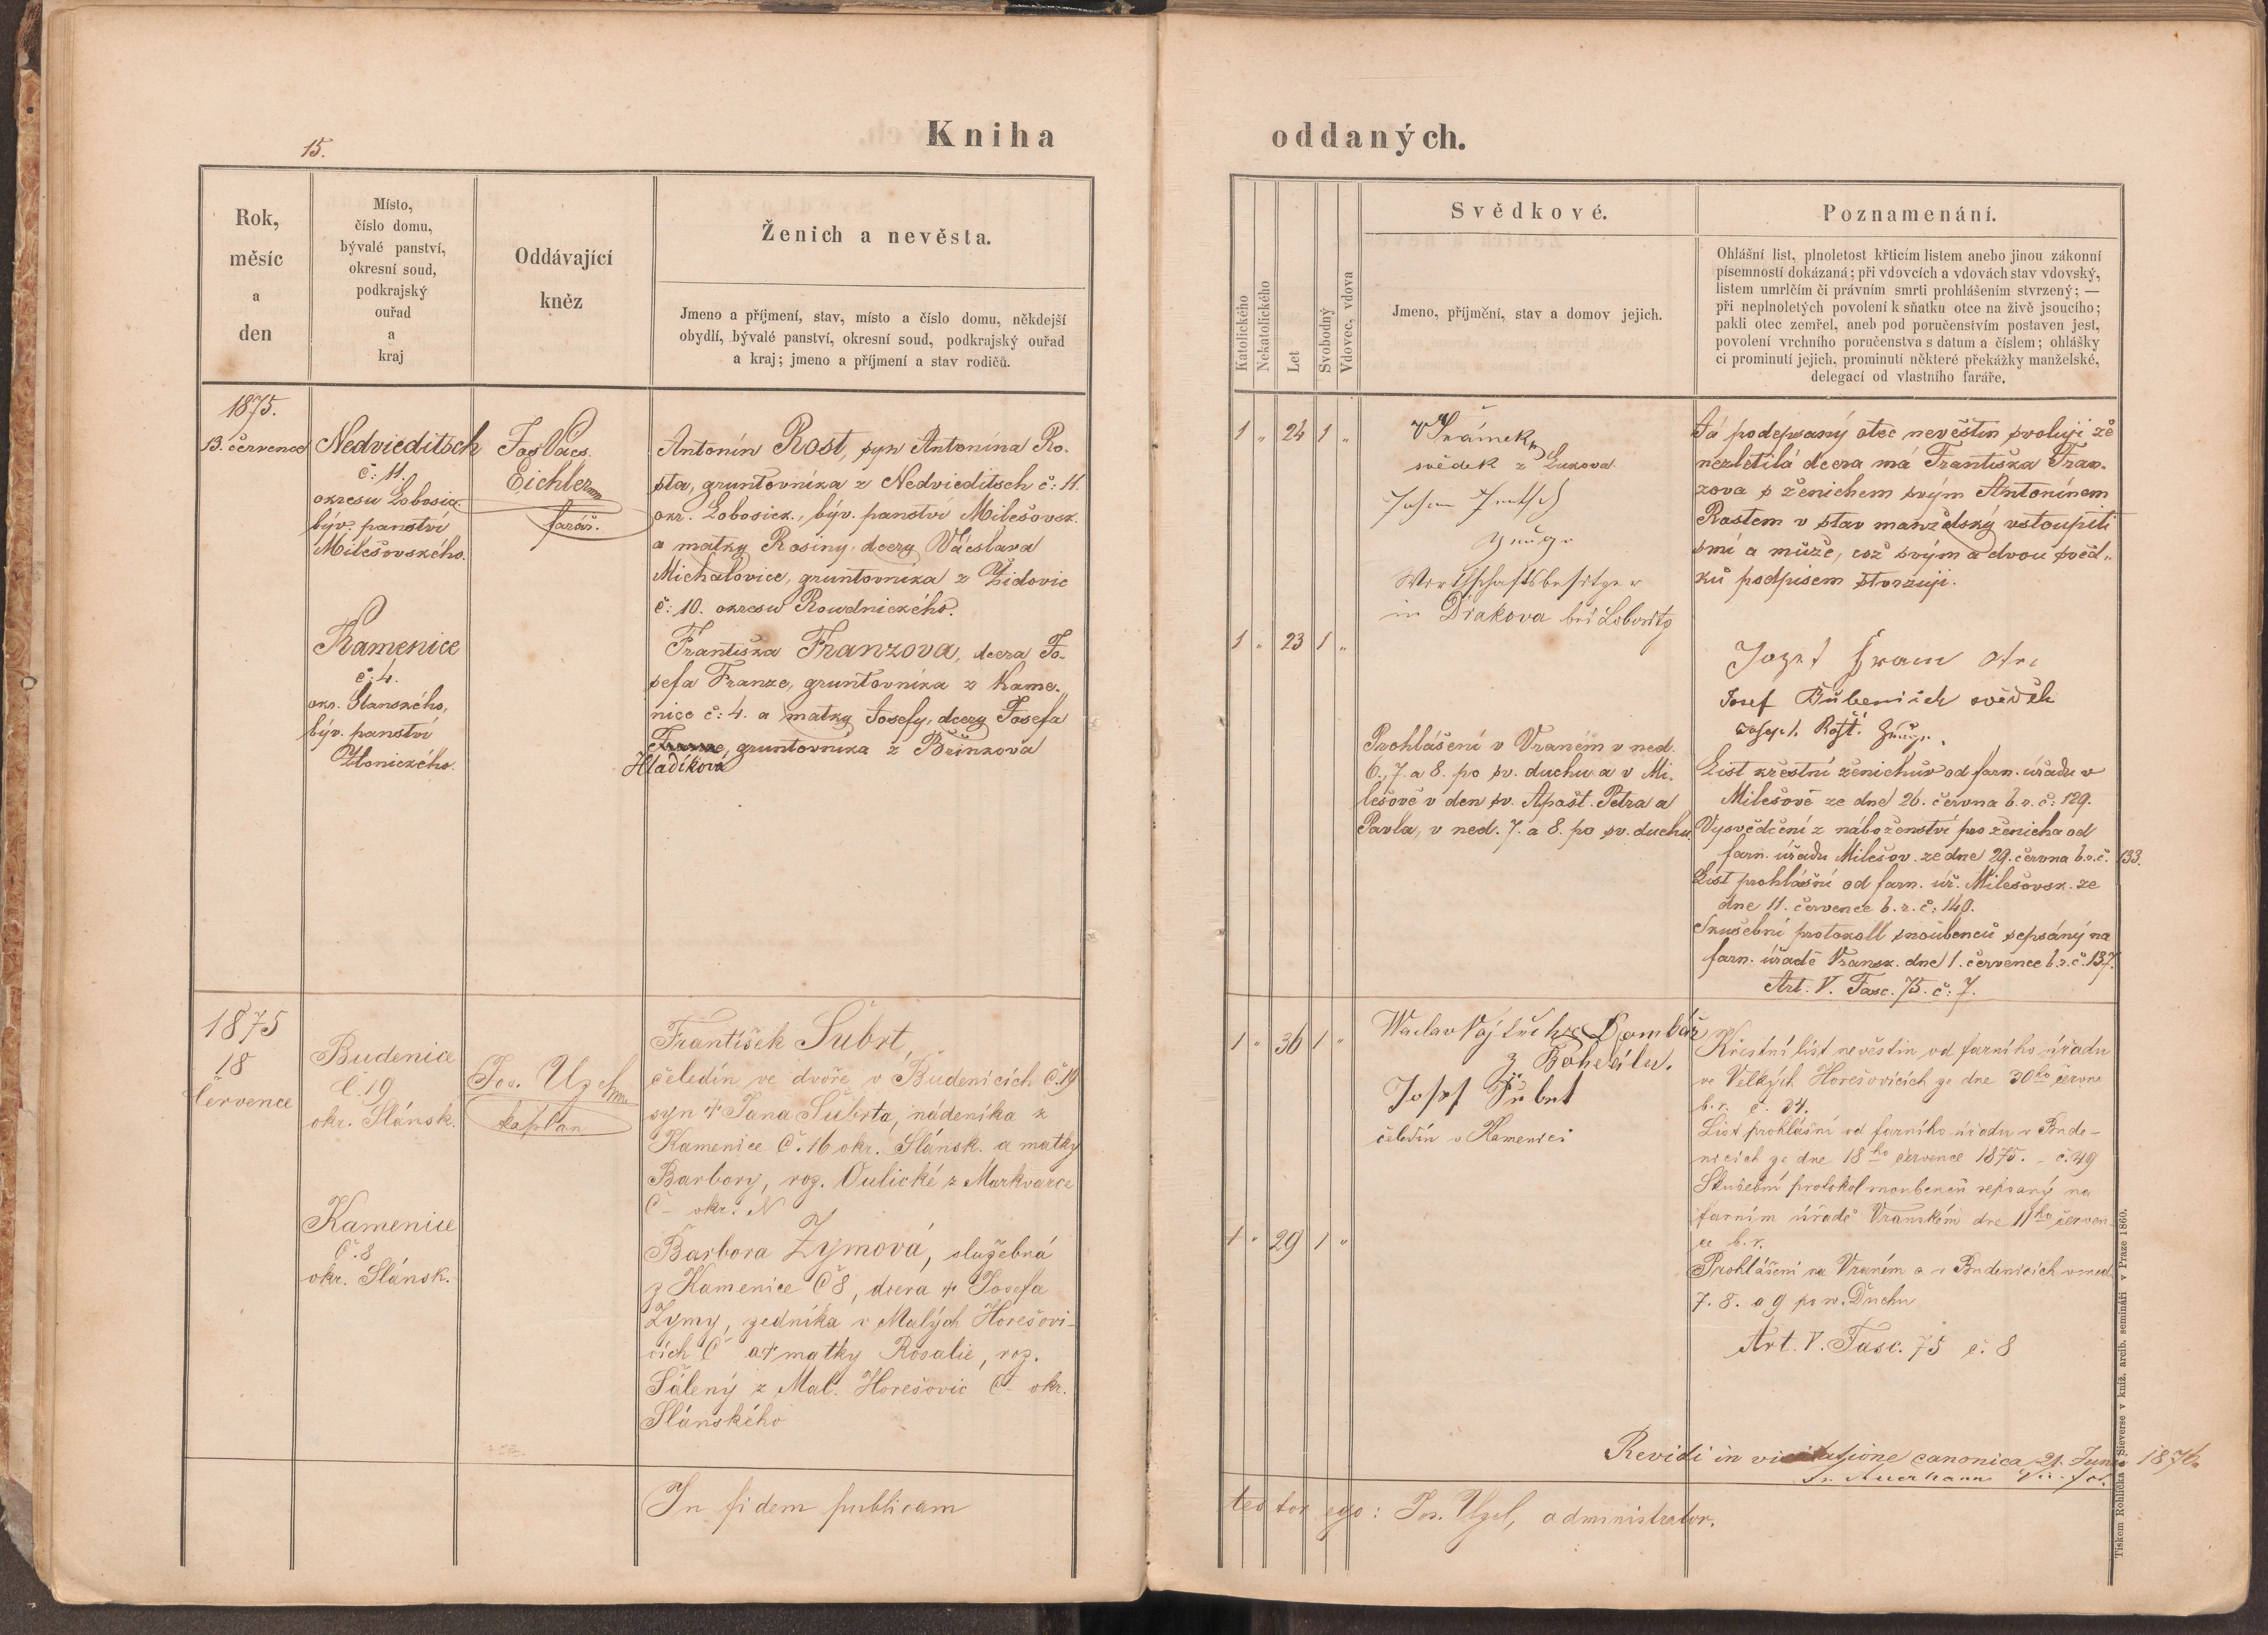 15.
Kniha
oddaných.
Rok,
měsíc
a
den
Místo,
číslo domu,
bývalé panství,
okresní soud,
podkrajský
ouřad
a
kraj
Oddávající
kněz
Ženich a nevěsta.
Jmeno a příjmení, stav, místo a číslo domu, někdejší
obydlí, bývalé panství, okresní soud, podkrajský ouřad
a kraj; jmeno a příjmení a stav rodičů.
Katolického
Nekatolického
Let
Svobodný
Vdovec, vdova
Svědkové.
Jmeno, příjmění, stav a domov jejich.
Poznamenání.
Ohlášní list, plnoletost křticím listem anebo jinou zákonní
písemností dokázaná; při vdovcích a vdovách stav vdovský,
listem umrlčím či právním smrti prohlášením stvrzený; —
při neplnoletých povolení k sňatku otce na živě jsoucího;
pakli otec zemřel, aneb pod poručenstvím postaven jest,
povolení vrchního poručenstva s datum a číslem; ohlášky
ci prominutí jejich, prominutí některé překážky manželské,
delegací od vlastního faráře.
1875.
13. července
Nedvieditsch
č: 11.
okresu Lobosic.
býv. panství
Milešovského.
Kamenice
č: 4.
okr. Slanského,
býv. panství
Zlonického.
Jos Vács.
Eichler
farář.
Antonín Rost, syn Antonína Ro-
sta, gruntovníka z Nedvieditsch č: 11.
okr. Lobosick., býv. panství Milešovsk.
a matky Rosiny, dcery Václava
Michalovice, gruntovníka z Židovic
č: 10. okresu Roudnického.
Františka Franzova, dcera Jo-
sefa Franze, gruntovníka z Kame-
nice č: 4. a matky Josefy, dcery Josefa
Franze, gruntovníka z Břínkova
Hladíková
1 " 24 1 "
1 " 23 1 "
V Šrámek
svědek z Lukova.
Johann
Zeuge
Wirthschaftsbesitzer
in Drakova bei Lobositz
Prohlášení v Vraném v ned.
6., 7. a 8. po sv. duchu a v Mi-
lešově v den sv. Apošt. Petra a
Pavla, v ned. 7. a 8. po sv. duchu.
Já podepsaný otec nevěstin svoluji že
nezletilá dcera má Františka Fran-
zova s ženichem svým Antonínem
Rostem v stav manželský vstoupiti
smí a může, což svým a dvou svěd-
ků podpisem stvrzuji.
Josef otec
Josef svědek
Joseph Rost Zeuge.
List křestní ženichův od farn. úřadu v
Milešově ze dne 26. června b. r. č: 129.
Vysvědčení z náboženství pro ženicha od
farn. úřadu Milešov. ze dne 29. června b. r. č. 133.
List prohlášní od farn. úř. Milešovsk. ze
dne 11. července b. r. č: 140.
Skušební protokoll snoubenců sepsáný na
farn. úřadě Vransk. dne 1. července b. r. č. 137.
Art. V. Fasc. 75. č: 7.
1875
18
července
Budenice
č. 19
okr. Slánsk.
Kamenice
č. 8
okr. Slánsk.
Jos. Uzel
kaplan
František Šubrt,
čeledín ve dvoře v Budenicích č. 19
syn † Jana Šubrta, nádeníka z
Kamenice č. 16 okr. Slánsk. a matky
Barbory, roz. Oulické z Markvarce
č – okr. N
Barbora Zymová, služebná
z Kamenice č 8, dcera † Josefa
Zymy, zedníka v Malých Horešovi-
cích č a † matky Rosalie, roz.
Šálený z Mal. Horešovic č – okr.
Slánského
1 " 36 1 "
1 " 29 1 "
Waclav
z
Josef Šubrt
čeledín v Kamenici
Křestní list nevěstin od farního úřadu
ve Velkých Horešovicích ze dne 30ho června
b. r. č. 84.
List prohlášní od farního úřadu v Bude-
nicích ze dne 18ho července 1875. – č. 49
Skušební protokol snoubenců sepsaný na
farním úřadě Vranském dne 11ho červen-
ce b. r.
Prohlášení ve Vraném a v Budenicích v ned.
7. 8. a 9 po sv. Duchu
Art. V. Fasc. 75 č. 8
Revidi in visitatione canonica 21. Junii 1876
In fidem publicam
testor ego: Jos. Uzel, administrator.
Tiskem Rohlíčka & Sieverse v kniž. arcib. semináři v Praze 1860.